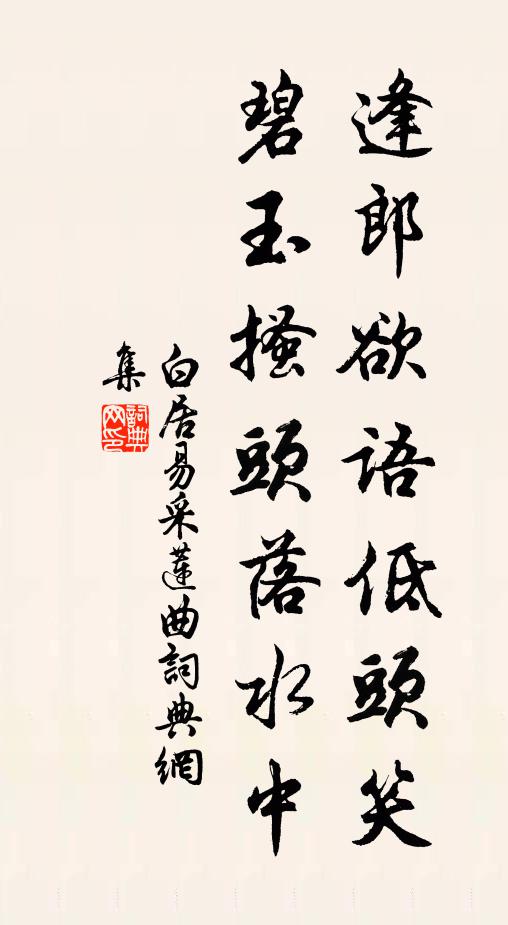 逢郎欲語低頭笑
碧玉搔頭落水中
白居易采蓮曲詞典網
集
詞典
网印